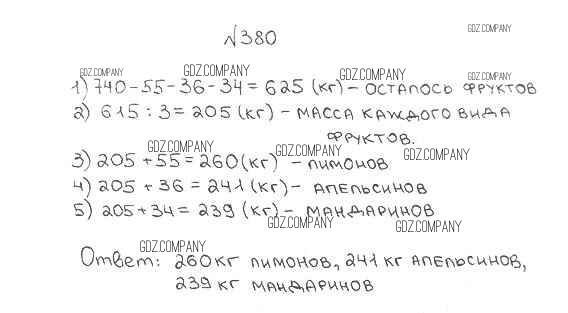 №380
GDZ.COMPANY
GDZ.COMPANY GDZ.COMPANY GDZ.COMPANY GDZ.COMPANY
1) 740-55-36-34=625 (кг) - осталось фруктов
2) 615 : 3 = 205 (кг) - масса каждого вида
фруктов.
GDZ.COMPANY GDZ.COMPANY GDZ.COMPANY
3) 205 + 55 = 260 (кг) - лимонов
4) 205 + 36 = 241 (кг) - апельсинов
5) 205 + 34 = 239 (кг) - мандаринов
GDZ.COMPANY GDZ.COMPANY
GDZ.COMPANY
Ответ: 260 кг лимонов, 241 кг апельсинов,
239 кг мандаринов